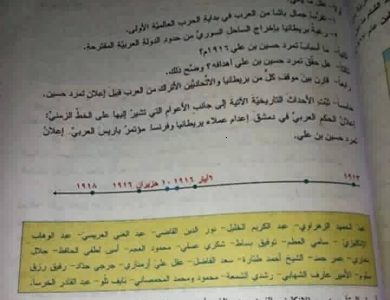 تقرّب جمال باشا من العرب في بداية الحرب العالميّة الأولى.
رغبة بريطانيا بإخراج الساحل السوريّ من حدود الدولة العربيّة المقترحة.
ما أسباب تمرد حسين بن علي ١٩١٦م؟
هل حقّق تمرد حسين بن علي أهدافه؟ وضّح ذلك.
قارن بين موقف كلّ من بريطانيا والاتّحاديّين الأتراك من العرب قبل إعلان تمرد حسين.
خامساً- ثبّت الأحداث التاريخيّة الآتية إلى جانب الأعوام التي تشير إليها على الخطّ الزمنيّ:
الحكم العربيّ في دمشق. إعدام عملاء بريطانيا وفرنسا. مؤتمر باريس العربيّ. إعلان
تمرد حسين بن علي.
١٩١٣ ٦ أيار ١٩١٦ ١٠ حزيران ١٩١٦ ١٩١٨
عبد الحميد الزهراوي- عبد الكريم الخليل- نور الدين القاضي- عبد الغني العريسي- عبد الوهاب
الإنكليزي- سامي العظم- توفيق بساط- شكري عسلي- محمود العجم- أمين لطفي الحافظ- جلال
بخاري- عمر حمد- الشيخ أحمد طبّارة- سعد الفاضل- عقل علي أرمنازي- جرجي حدّاد- رفيق رزق
سلّوم- الأمير عارف الشهابي- رشدي الشمعة- محمود ومحمد المحمصاني- نايف تللو- عبد القادر الخرسا.